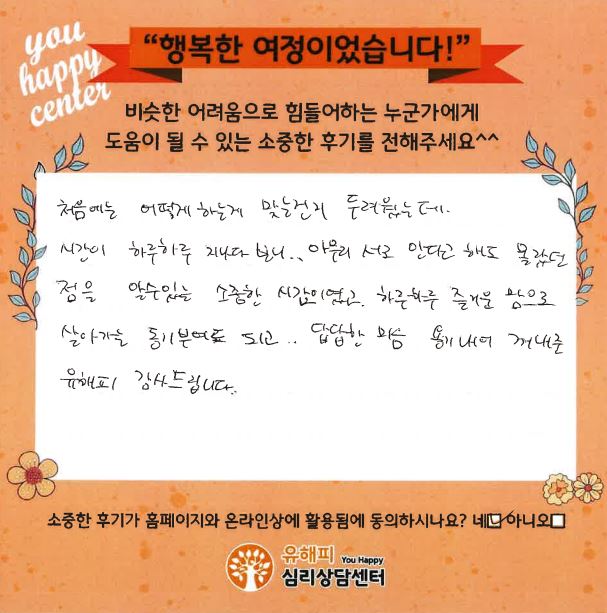 you
happy
center
“행복한 여정이었습니다!”
비슷한 어려움으로 힘들어하는 누군가에게
도움이 될 수 있는 소중한 후기를 전해주세요^^
처음에는 어떻게하는게 맞는건지 두려웠는데.
시간이 하루하루 지나다 보니.. 아무리 서로 안다고 해도 몰랐던
점을 알수있는 소중한 시간이였고, 하루하루 즐거운 맘으로
살아가는 동기부여도 되고.. 답답한 마음 용기내어 꺼내준
유해피 감사드립니다.
소중한 후기가 홈페이지와 온라인상에 활용됨에 동의하시나요? 네☑ 아니오□
유해피 You Happy
심리상담센터